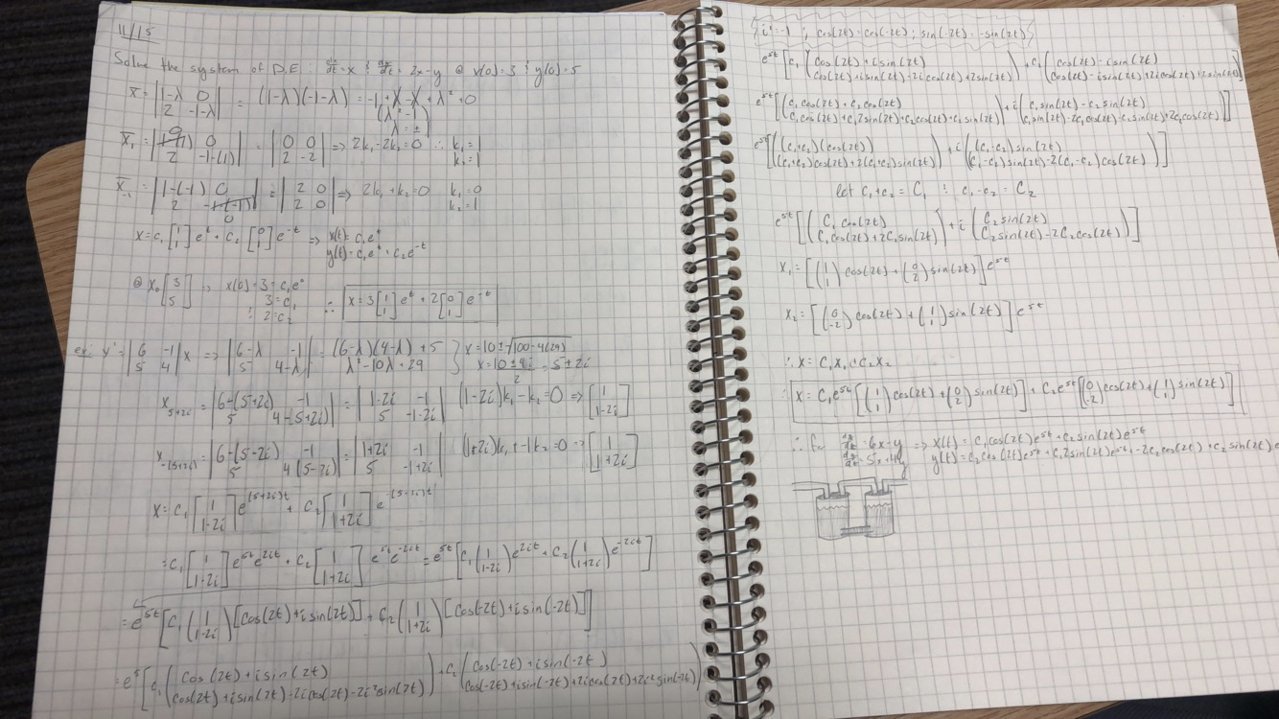 11/15
Solve the system of D.E: dx/dt = x & dy/dt = 2x-y @ x(0)=3 & y(0)=5
x̄ = |1-λ 0; 2 -1-λ| = (1-λ)(-1-λ) = -1+λ-λ+λ²=0
(λ²-1)
λ=±1
x̄₁ = |1-(1) 0; 2 -1-(1)| = |0 0; 2 -2| => 2k₁-2k₂=0 ∴ k₁=1
k₂=1
x̄₋₁ = |1-(-1) 0; 2 -1-(-1)| = |2 0; 2 0| => 2k₁+k₂=0 k₁=0
0 k₂=1
x=c₁[1; 1]e^t + c₂[0; 1]e^-t => x(t)=c₁e^t
y(t)=c₁e^t+c₂e^-t
@ x₀[3; 5] => x(0)=3=c₁e⁰
3=c₁
: 2=c₂ ∴ x=3[1; 1]e^t+2[0; 1]e^-t
ex: x'=|6 -1; 5 4|x => |6-λ -1; 5 4-λ| = (6-λ)(4-λ)+5 } x=10±√100-4(29)
λ²-10λ+29 x=10±4i/2 = 5±2i
x₅₊₂ᵢ = |6-(5+2i) -1; 5 4-(5+2i)| = |1-2i -1; 5 -1-2i| (1-2i)k₁-k₂=0 => [1; 1-2i]
x₋₍₅₊₂ᵢ₎ = |6-(5-2i) -1; 5 4(5-2i)| = |1+2i -1; 5 -1+2i| (1+2i)k₁+-1k₂=0 => [1; 1+2i]
x=c₁[1; 1-2i]e^(5+2i)t + c₂[1; 1+2i]e^-(5+2i)t
=c₁[1; 1-2i]e^5t e^2it + c₂[1; 1+2i] e^5t e^-2it = e^5t[c₁(1; 1-2i)e^2it + c₂(1; 1+2i)e^-2it]
=e^5t[c₁(1; 1-2i)[cos(2t)+isin(2t)] + c₂(1; 1+2i)[cos(-2t)+isin(-2t)]]
=e^5[c₁(cos(2t)+isin(2t); cos(2t)+isin(2t)-2icos(2t)-2i²sin(2t))+c₂(cos(-2t)+isin(-2t); cos(-2t)+isin(-2t)+2icos(2t)+2i²sin(-2t))
i²=-1 ; cos(2t)=cos(-2t) ; sin(-2t)=-sin(2t)
e^5t[c₁(cos(2t)+isin(2t); cos(2t)+isin(2t)-2icos(2t)+2sin(2t))+c₂(cos(2t)-isin(2t); cos(2t)-isin(2t)+2icos(2t)+2sin(2t))]
e^5t[(c₁cos(2t)+c₂cos(2t); c₁cos(2t)+c₁2sin(2t)+c₂cos(2t)+c₂sin(2t))+i(c₁sin(2t)-c₂sin(2t); c₁sin(2t)-2c₁cos(2t)-c₂sin(2t)+2c₂cos(2t))]
e^5t[((c₁+c₂)(cos(2t)); (c₁+c₂)cos(2t)+2(c₁+c₂)sin(2t))+i((c₁-c₂)sin(2t); (c₁-c₂)sin(2t)-2(c₁-c₂)cos(2t))]
let c₁+c₂=C₁ : c₁-c₂=C₂
e^5t[(C₁cos(2t); C₁cos(2t)+2C₁sin(2t))+i(C₂sin(2t); C₂sin(2t)-2C₂cos(2t))]
x₁=[(1; 1)cos(2t)+(0; 2)sin(2t)]e^5t
x₂=[(0; -2)cos(2t)+(1; 1)sin(2t)]e^5t
∴ x=C₁x₁+C₂x₂
∴ x=C₁e^5t[(1; 1)cos(2t)+(0; 2)sin(2t)]+C₂e^5t[(0; -2)cos(2t)+(1; 1)sin(2t)]
∴ for dx/dt=6x-y => x(t)=c₁cos(2t)e^5t+c₂sin(2t)e^5t
dy/dt=5x+4y y(t)=c₂cos(2t)e^5t+c₁2sin(2t)e^5t-2c₂cos(2t)+c₂sin(2t)e